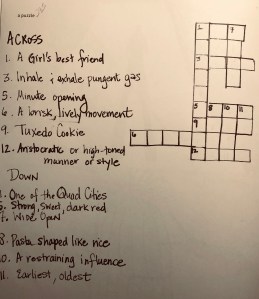 a puzzle
ACROSS
1. A Girl's best friend
3. Inhale & exhale pungent gas
5. Minute opening
6. A brisk, lively movement
9. Tuxedo Cookie
12. Aristocratic or high-toned
manner or style
DOWN
1. One of the Quad Cities
Strong, Sweet, dark red
7. Wide Open
8. Pasta shaped like rice
10. A restraining influence
11. Earliest, oldest
1 7
3
5 8 10 11
9
6
12